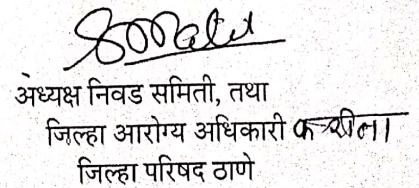 अध्यक्ष निवड समिती, तथा
जिल्हा आरोग्य अधिकारी
जिल्हा परिषद ठाणे